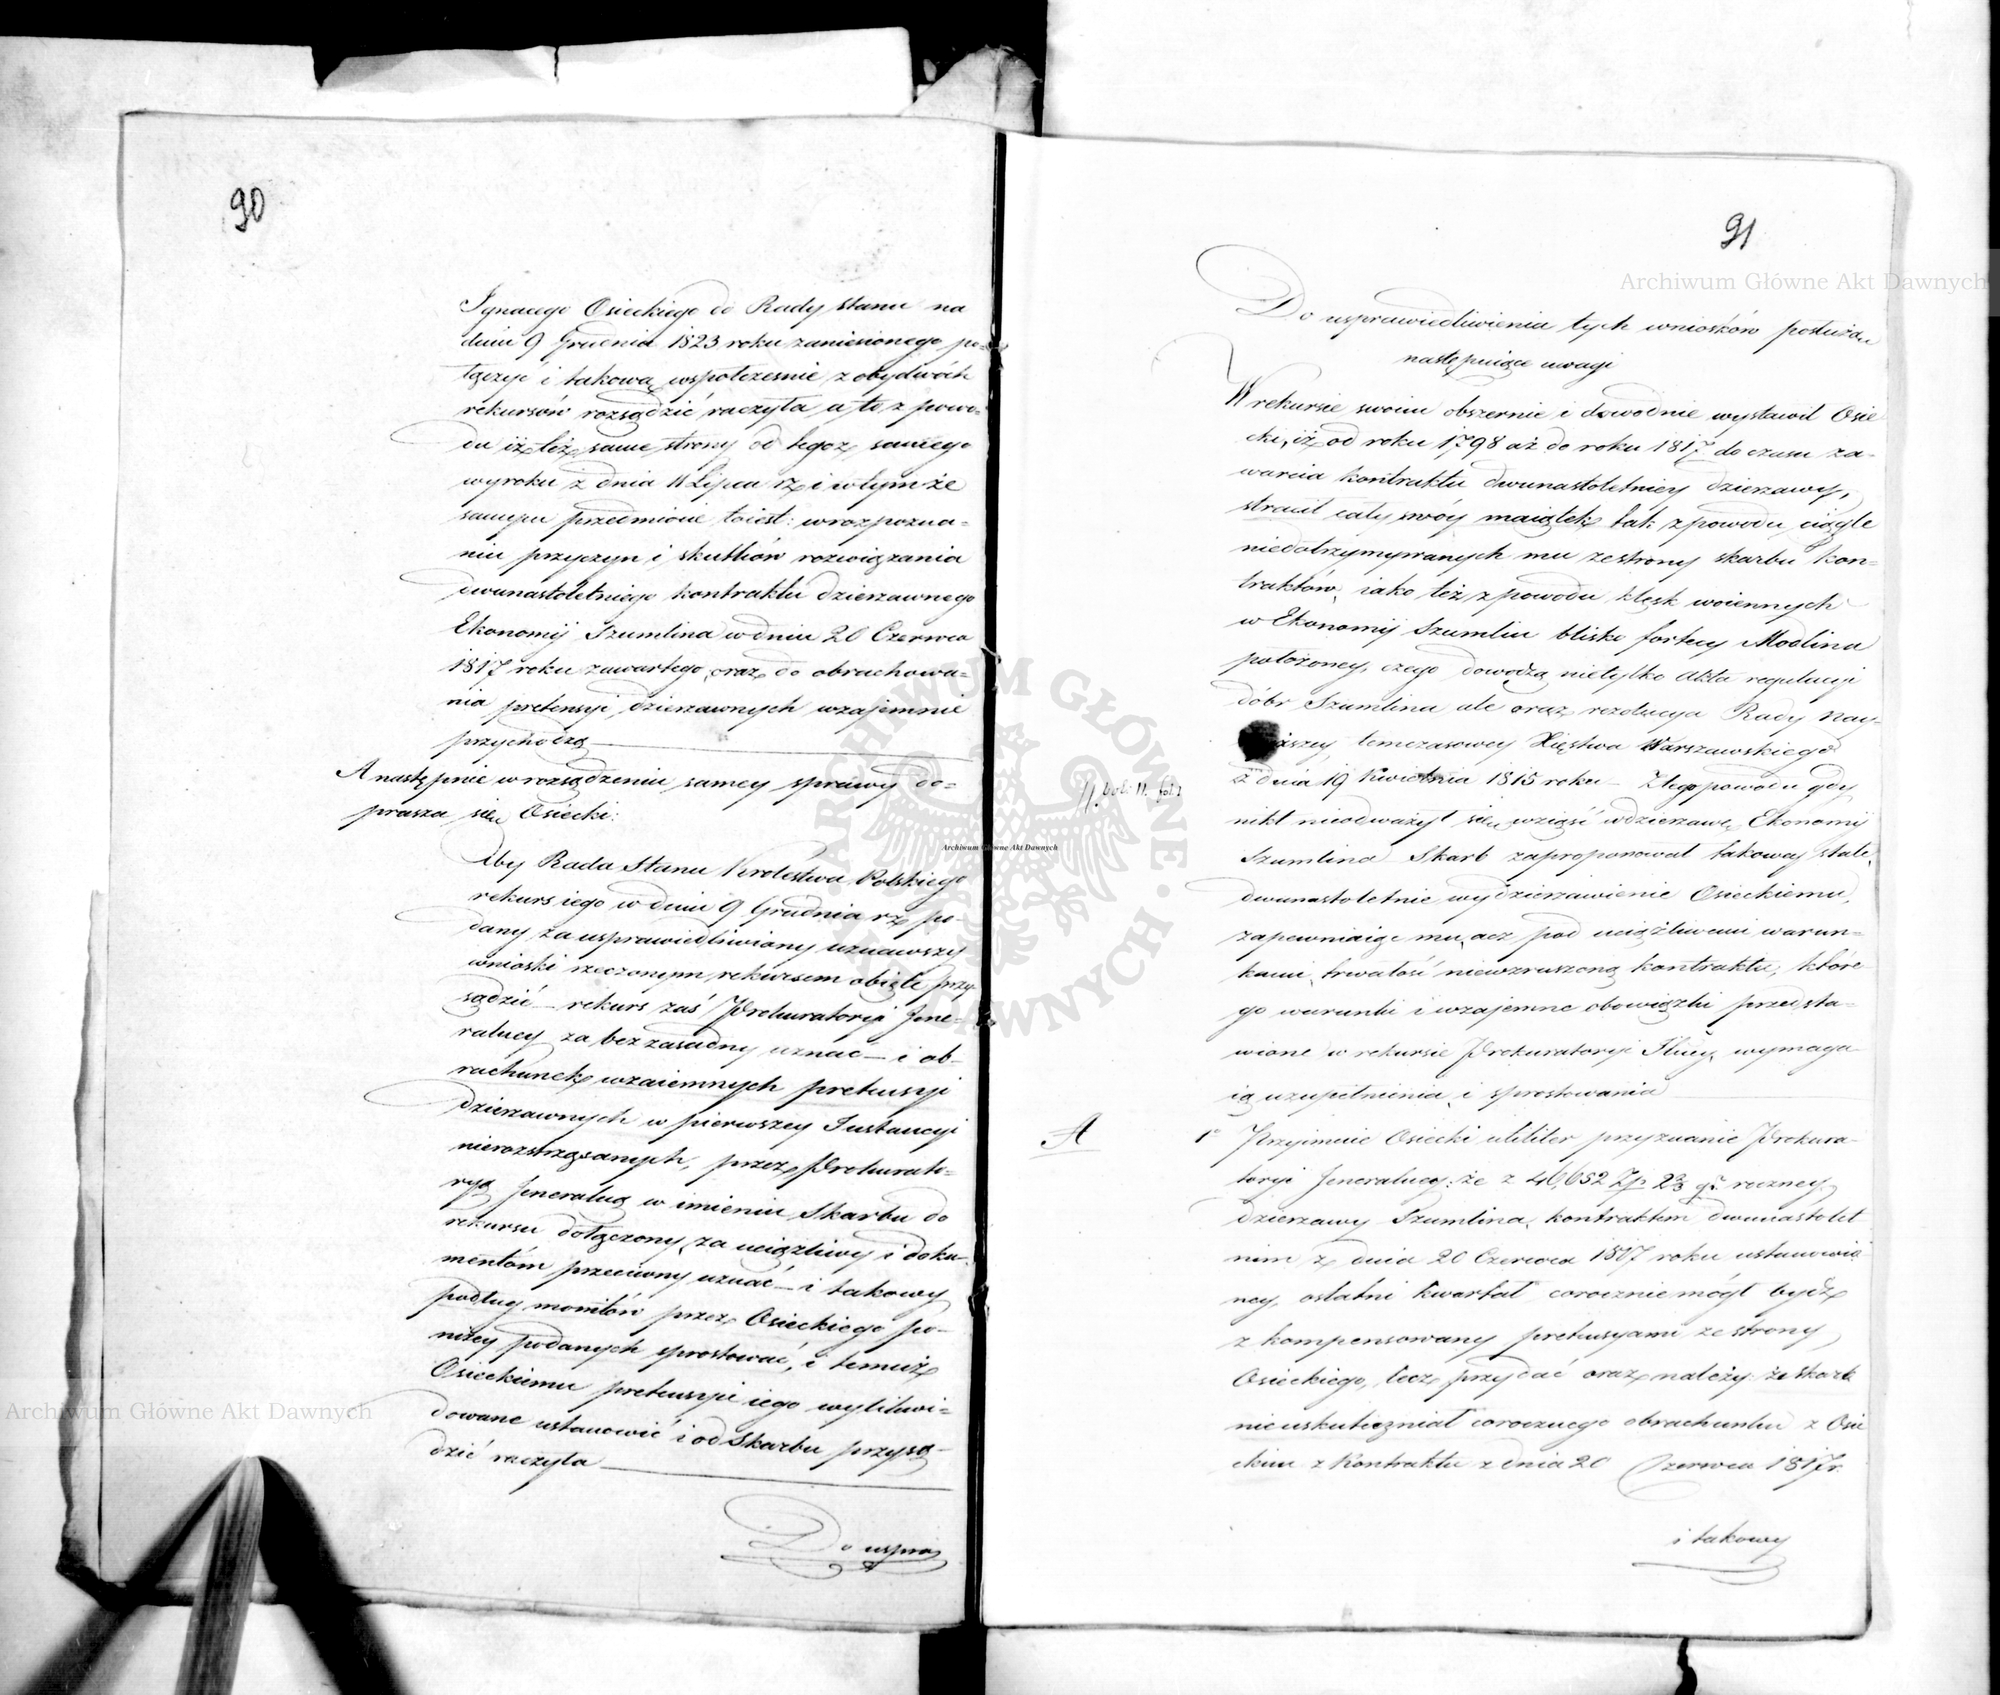 90
Ignacego Osieckiego do Rady stanu na
dniu 9 Grudnia 1823 roku zaniesionego po-
łączyć i takową wspołczesnie z obydwóch
rekursów rozsądzić raczyła a to z powo-
du iż też same strony od tegoż samego
wyroku z dnia 11 Lipca rż i w tym że
samym przedmiocie toiest: w rozpozna-
niu przyczyn i skutków rozwiązania
dwunastoletniego kontraktu dzierzawnego
Ekonomij Szumlina w dniu 20 Czerwca
1817 roku zawartego, oraz do obrachowa-
nia pretensyi dzierzawnych wzajemnie
przychodzą
A następnie w rozsądzeniu samey sprawy do-
prasza się Osiecki:
Aby Rada Stanu Królestwa Polskiego
rekurs iego w dniu 9 Grudnia rż po-
dany za usprawiedliwiony uznawszy
wnioski rzeczonym rekursem obięte przy-
sądzić – rekurs zaś Prokuratoryi Jene-
ralney za bezzasadny uznać – i ob-
rachunek wzaiemnych pretensyi
dzierzawnych w pierwszey Instancyi
nierozstrząsanych, przez Prokurato-
ryą Jeneralną w imieniu Skarbu do
rekursu dołączony, za uciążliwy i doku-
mentom przeciwny uznać – i takowy
podług monitów przez Osieckiego po-
niżey podanych sprostować, i temuż
Osieckiemu pretensye iego wylikwi-
dowane ustanowić i od Skarbu przysą-
dzić raczyła
Do uspra
91
Do usprawiedliwienia tych wniosków posłużą
następuiące uwagi
W rekursie swoim obszernie i dowodnie wystawił Osie
cki, iż od roku 1798 aż do roku 1817 do czasu za-
warcia kontraktu dwunastoletniey dzierzawy,
stracił cały swóy maiątek tak z powodu ciągle
niedotrzymywanych mu ze strony skarbu kon-
traktów, iako też z powodu klęsk woiennych
w Ekonomij Szumlin blisko fortecy Modlina
położoney, czego dowodzą nietylko akta regulacyi
dóbr Szumlina ale oraz rezolucya Rady Nay-
szey temczasowey Xięstwa Warszawskiego
z dnia 19 Kwietnia 1815 roku – Z tego powodu gdy
nikt nieodważył się wziąść w dzierzawę Ekonomij
Szumlina Skarb zaproponował takowey stałe
dwunastoletnie wydzierzawienie Osieckiemu,
zapewniaiąc mu, acz pod uciążliwemi warun-
kami, trwałość niewzruszoną kontraktu, które-
go warunki i wzajemne obowiązki przedsta-
wione w rekursie Prokuratoryi Jlney wymaga
ią uzupełnienia i sprostowania
A
1° Przyimuie Osiecki utiliter przyznanie Prokura-
toryi Jeneralney: że z 46,652 Zp 2⅔ gr roczney
dzierzawy Szumlina, kontraktem dwunastolet
nim z dnia 20 Czerwca 1817 roku ustanowio
ney, ostatni kwartał corocznie mógł bydź
z kompensowany pretensyami ze strony
Osieckiego, lecz przydać oraz należy: że skarb
nieuskuteczniał corocznego obrachunku z Osie
ckim z Kontraktu z dnia 20 Czerwca 1817 r.
i takowy
Archiwum Główne Akt Dawnych
Archiwum Główne Akt Dawnych
Archiwum Główne Akt Dawnych
ARCHIWUM GŁÓWNE AKT DAWNYCH